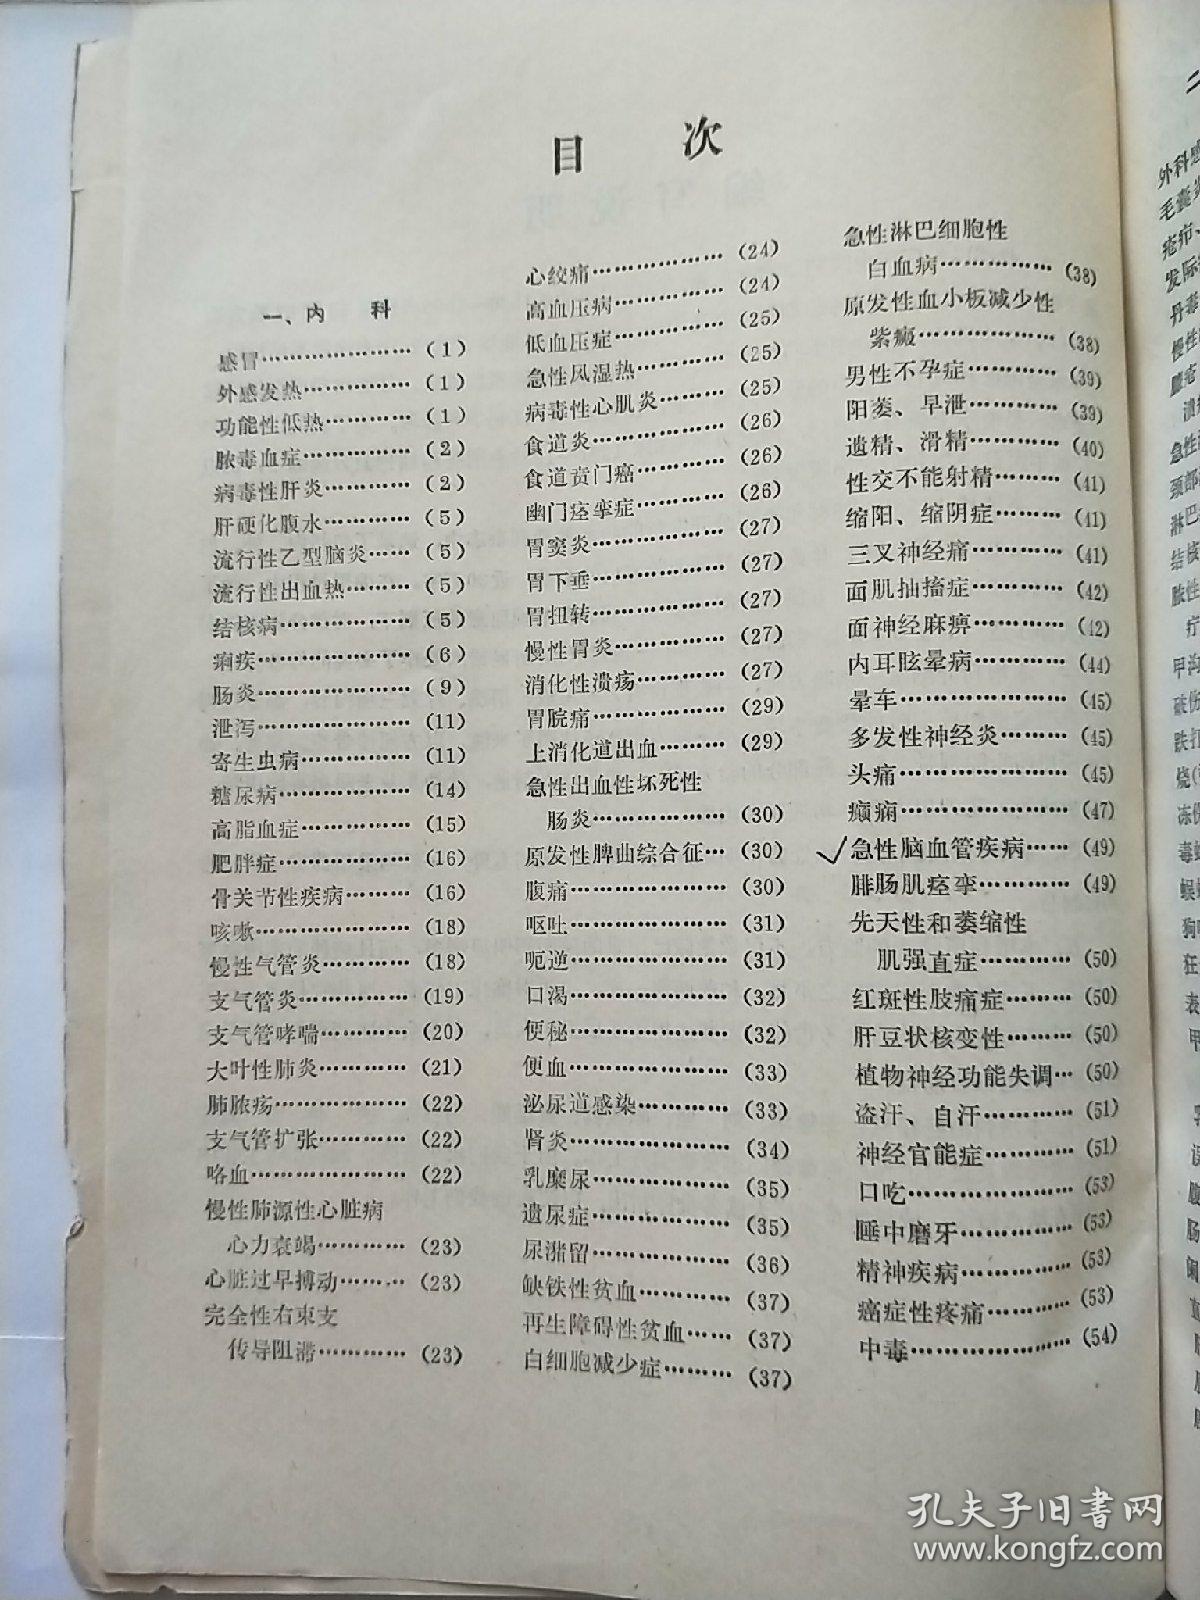 目 次
一、内 科
感冒…………………（1）
外感发热……………（1）
功能性低热…………（1）
脓毒血症……………（2）
病毒性肝炎…………（2）
肝硬化腹水…………（5）
流行性乙型脑炎……（5）
流行性出血热………（5）
结核病………………（5）
痢疾…………………（6）
肠炎…………………（9）
泄泻…………………（11）
寄生虫病……………（11）
糖尿病………………（14）
高脂血症……………（15）
肥胖症………………（16）
骨关节性疾病………（16）
咳嗽…………………（18）
慢性气管炎…………（18）
支气管炎……………（19）
支气管哮喘…………（20）
大叶性肺炎…………（21）
肺脓疡………………（22）
支气管扩张…………（22）
咯血…………………（22）
慢性肺源性心脏病
心力衰竭…………（23）
心脏过早搏动………（23）
完全性右束支
传导阻滞…………（23）
心绞痛………………（24）
高血压病……………（24）
低血压症……………（25）
急性风湿热…………（25）
病毒性心肌炎………（25）
食道炎………………（26）
食道贲门癌…………（26）
幽门痉挛症…………（26）
胃窦炎………………（27）
胃下垂………………（27）
胃扭转………………（27）
慢性胃炎……………（27）
消化性溃疡…………（27）
胃脘痛………………（29）
上消化道出血………（29）
急性出血性坏死性
肠炎………………（30）
原发性脾曲综合征…（30）
腹痛…………………（30）
呕吐…………………（31）
呃逆…………………（31）
口渴…………………（32）
便秘…………………（32）
便血…………………（33）
泌尿道感染…………（33）
肾炎…………………（34）
乳糜尿………………（35）
遗尿症………………（35）
尿潴留………………（36）
缺铁性贫血…………（37）
再生障碍性贫血……（37）
白细胞减少症………（37）
急性淋巴细胞性
白血病……………（38）
原发性血小板减少性
紫癜………………（38）
男性不孕症…………（39）
阳萎、早泄…………（39）
遗精、滑精…………（40）
性交不能射精………（41）
缩阳、缩阴症………（41）
三叉神经痛…………（41）
面肌抽搐症…………（42）
面神经麻痹…………（42）
内耳眩晕病…………（44）
晕车…………………（45）
多发性神经炎………（45）
头痛…………………（45）
癫痫…………………（47）
急性脑血管疾病……（49）
腓肠肌痉挛…………（49）
先天性和萎缩性
肌强直症…………（50）
红斑性肢痛症………（50）
肝豆状核变性………（50）
植物神经功能失调…（50）
盗汗、自汗…………（51）
神经官能症…………（51）
口吃…………………（53）
睡中磨牙……………（53）
精神疾病……………（53）
癌症性疼痛…………（53）
中毒…………………（54）
孔夫子旧书网
www.kongfz.com